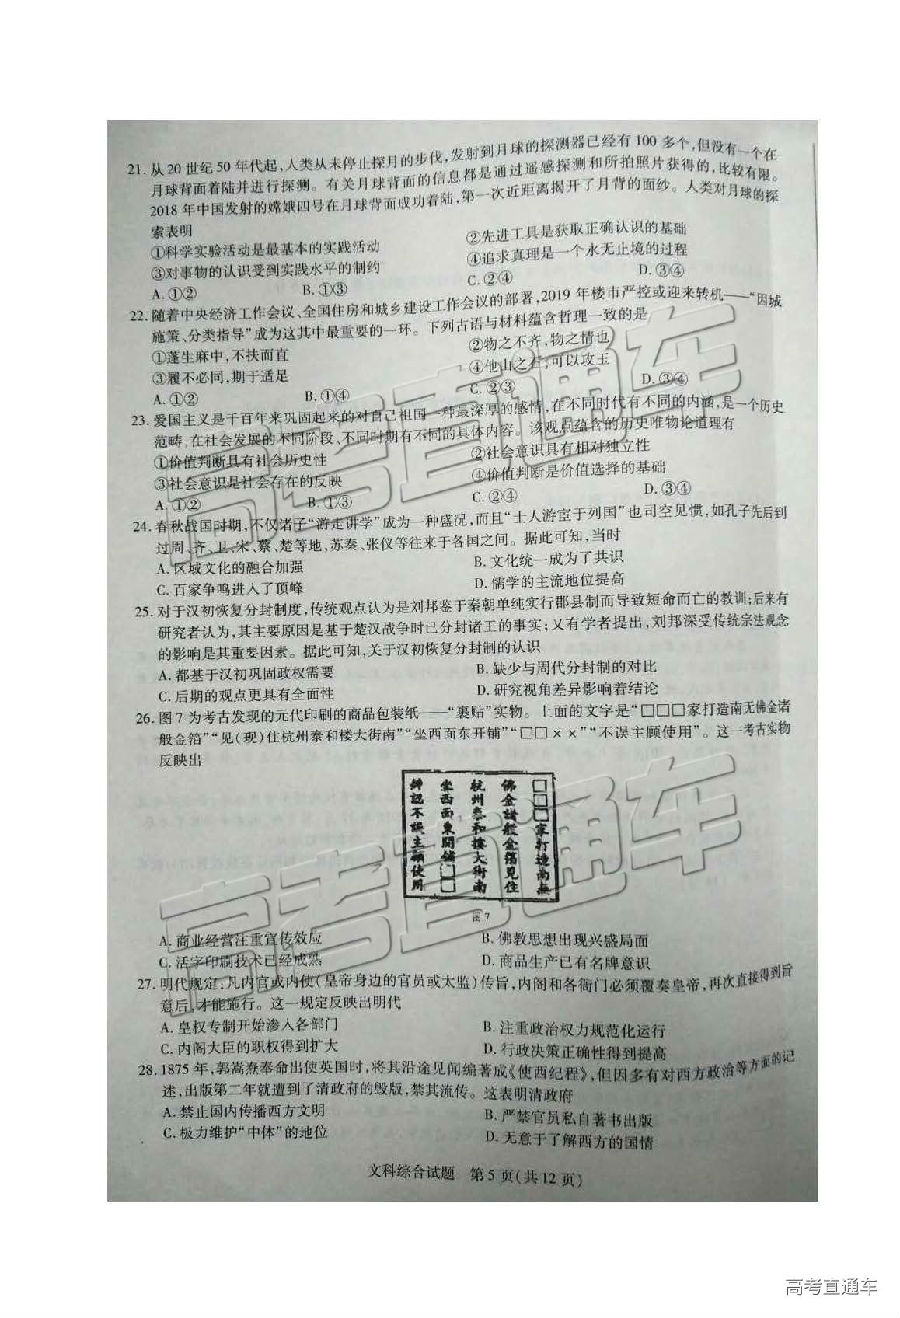 21. 从 20 世纪 50 年代起,人类从未停止探月的步伐,发射到月球的探测器已经有 100 多个,但没有一个在
月球背面着陆并进行探测。有关月球背面的信息都是通过遥感探测和所拍照片获得的,比较有限。
2018 年中国发射的嫦娥四号在月球背面成功着陆,第一次近距离揭开了月背的面纱。人类对月球的探
索表明
①科学实验活动是最基本的实践活动
②先进工具是获取正确认识的基础
③对事物的认识受到实践水平的制约
④追求真理是一个永无止境的过程
A. ①② B. ①③ C. ②④ D. ③④
22. 随着中央经济工作会议、全国住房和城乡建设工作会议的部署,2019 年楼市严控或迎来转机——“因城
施策、分类指导”成为这其中最重要的一环。下列古语与材料蕴含哲理一致的是
①蓬生麻中,不扶而直
②物之不齐,物之情也
③履不必同,期于适足
④他山之石,可以攻玉
A. ①② B. ①④ C. ②③ D. ③④
23. 爱国主义是千百年来巩固起来的对自己祖国一种最深厚的感情,在不同时代有不同的内涵,是一个历史
范畴,在社会发展的不同阶段、不同时期有不同的具体内容。该观点蕴含的历史唯物论道理有
①价值判断具有社会历史性
②社会意识具有相对独立性
③社会意识是社会存在的反映
④价值判断是价值选择的基础
A. ①② B. ①③ C. ②④ D. ③④
24. 春秋战国时期,不仅诸子“游走讲学”成为一种盛况,而且“士人游宦于列国”也司空见惯,如孔子先后到
过周、齐、卫、宋、蔡、楚等地,苏秦、张仪等往来于各国之间。据此可知,当时
A. 区域文化的融合加强 B. 文化统一成为了共识
C. 百家争鸣进入了顶峰 D. 儒学的主流地位提高
25. 对于汉初恢复分封制度,传统观点认为是刘邦鉴于秦朝单纯实行郡县制而导致短命而亡的教训;后来有
研究者认为,其主要原因是基于楚汉战争时已分封诸王的事实;又有学者提出,刘邦深受传统宗法观念
的影响是其重要因素。据此可知,关于汉初恢复分封制的认识
A. 都基于汉初巩固政权需要 B. 缺少与周代分封制的对比
C. 后期的观点更具有全面性 D. 研究视角差异影响着结论
26. 图 7 为考古发现的元代印刷的商品包装纸——“裹贴”实物。上面的文字是“□□□家打造南无佛金诸
般金箔”“见(现)住杭州泰和楼大街南”“坐西面东开铺”“□□××”“不误主顾使用”。这一考古实物
反映出
□□□家打造南無
佛金諸般金箔見住
杭州泰和樓大街南
坐西面東開鋪□□
辨認不誤主顧使用
图 7
A. 商业经营注重宣传效应 B. 佛教思想出现兴盛局面
C. 活字印刷技术已经成熟 D. 商品生产已有名牌意识
27. 明代规定,凡内官或内使(皇帝身边的官员或太监)传旨,内阁和各衙门必须覆奏皇帝,再次直接得到旨
意后,才能施行。这一规定反映出明代
A. 皇权专制开始渗入各部门 B. 注重政治权力规范化运行
C. 内阁大臣的职权得到扩大 D. 行政决策正确性得到提高
28. 1875 年,郭嵩焘奉命出使英国时,将其沿途见闻编著成《使西纪程》,但因多有对西方政治等方面的记
述,出版第二年就遭到了清政府的毁版,禁其流传。这表明清政府
A. 禁止国内传播西方文明 B. 严禁官员私自著书出版
C. 极力维护“中体”的地位 D. 无意于了解西方的国情
文科综合试题 第 5 页(共 12 页)
高考直通车
高考直通车
高考直通车